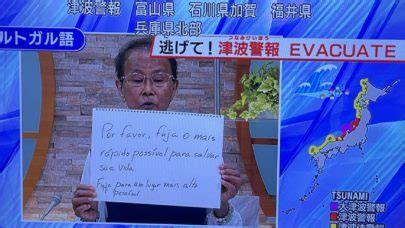 津波警報 富山県 石川県加賀 福井県
兵庫県北部
ルトガル語
つなみけいほう
逃げて! 津波警報 EVACUATE
Por favor, fuja o mais
rápido possível para salvar
sua vida.
Fuja para um lugar mais alto
possível.
TSUNAMI
大津波警報
津波警報
津波注意報